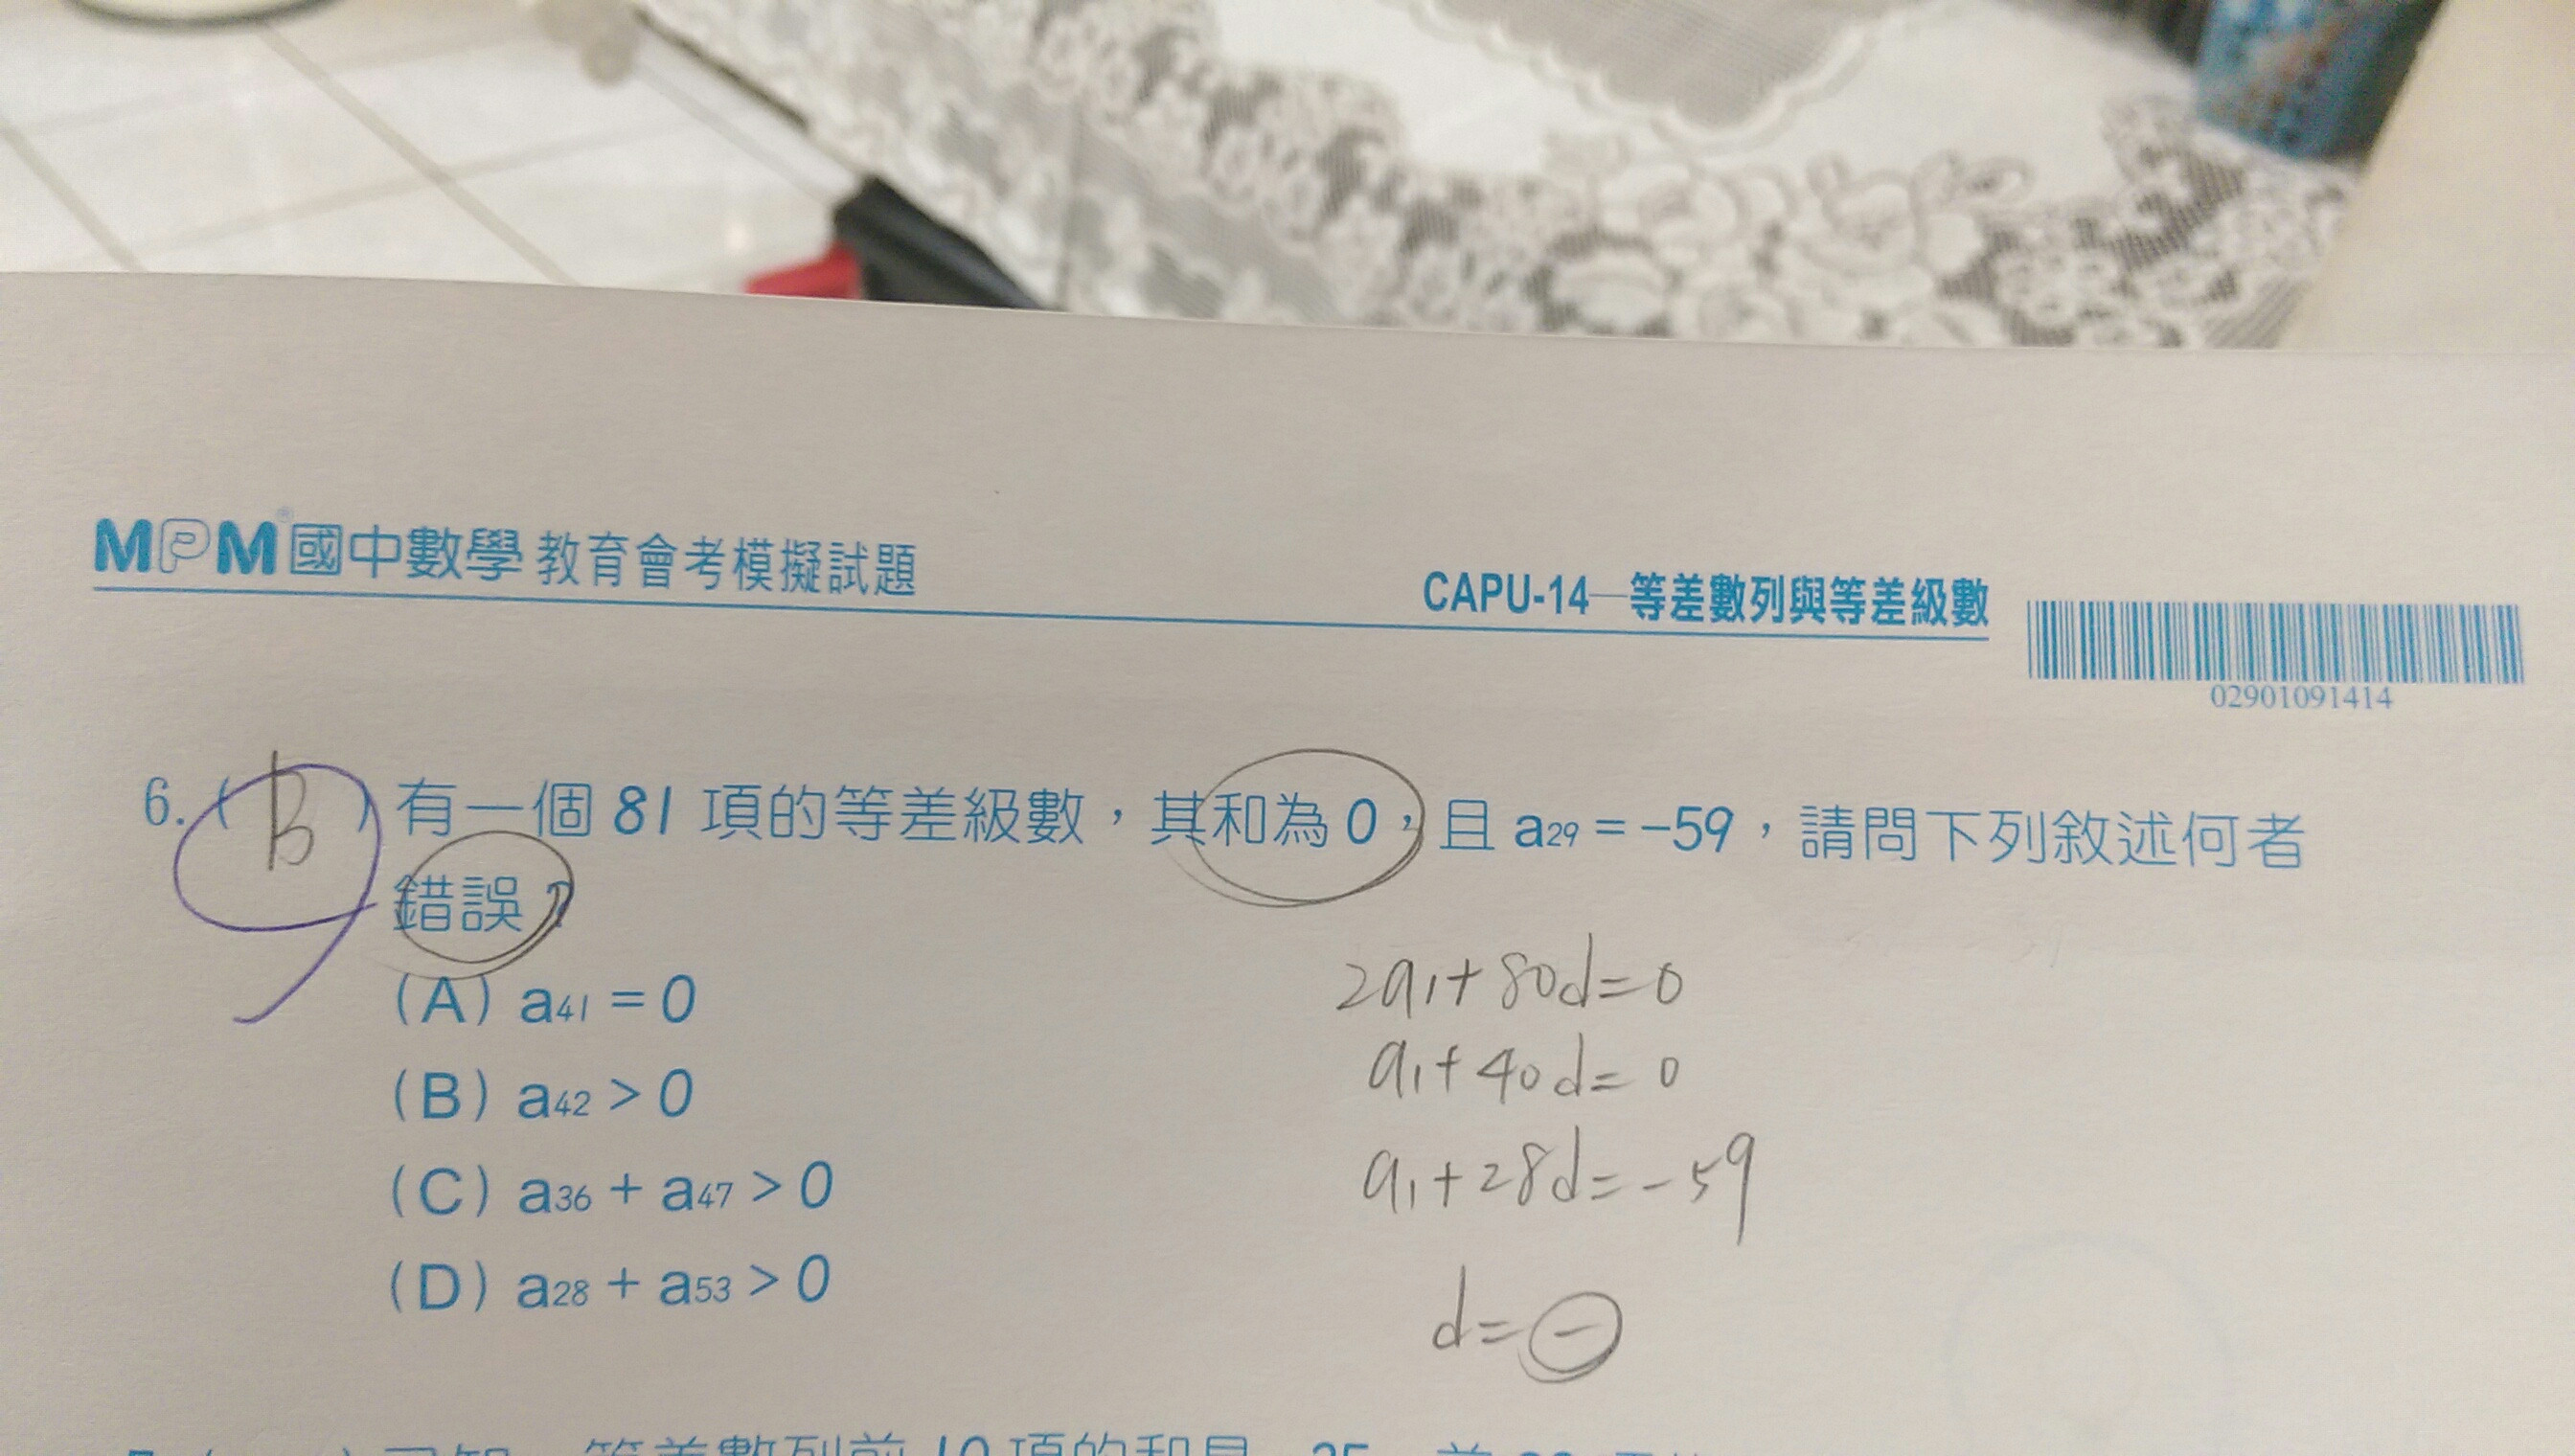 MPM®國中數學 教育會考模擬試題
CAPU-14—等差數列與等差級數
02901091414
6. ( B ) 有一個 81 項的等差級數，其和為 0，且 a29 = -59，請問下列敘述何者
錯誤？
(A) a41 = 0
(B) a42 > 0
(C) a36 + a47 > 0
(D) a28 + a53 > 0
2a1+80d=0
a1+40d=0
a1+28d=-59
d=-